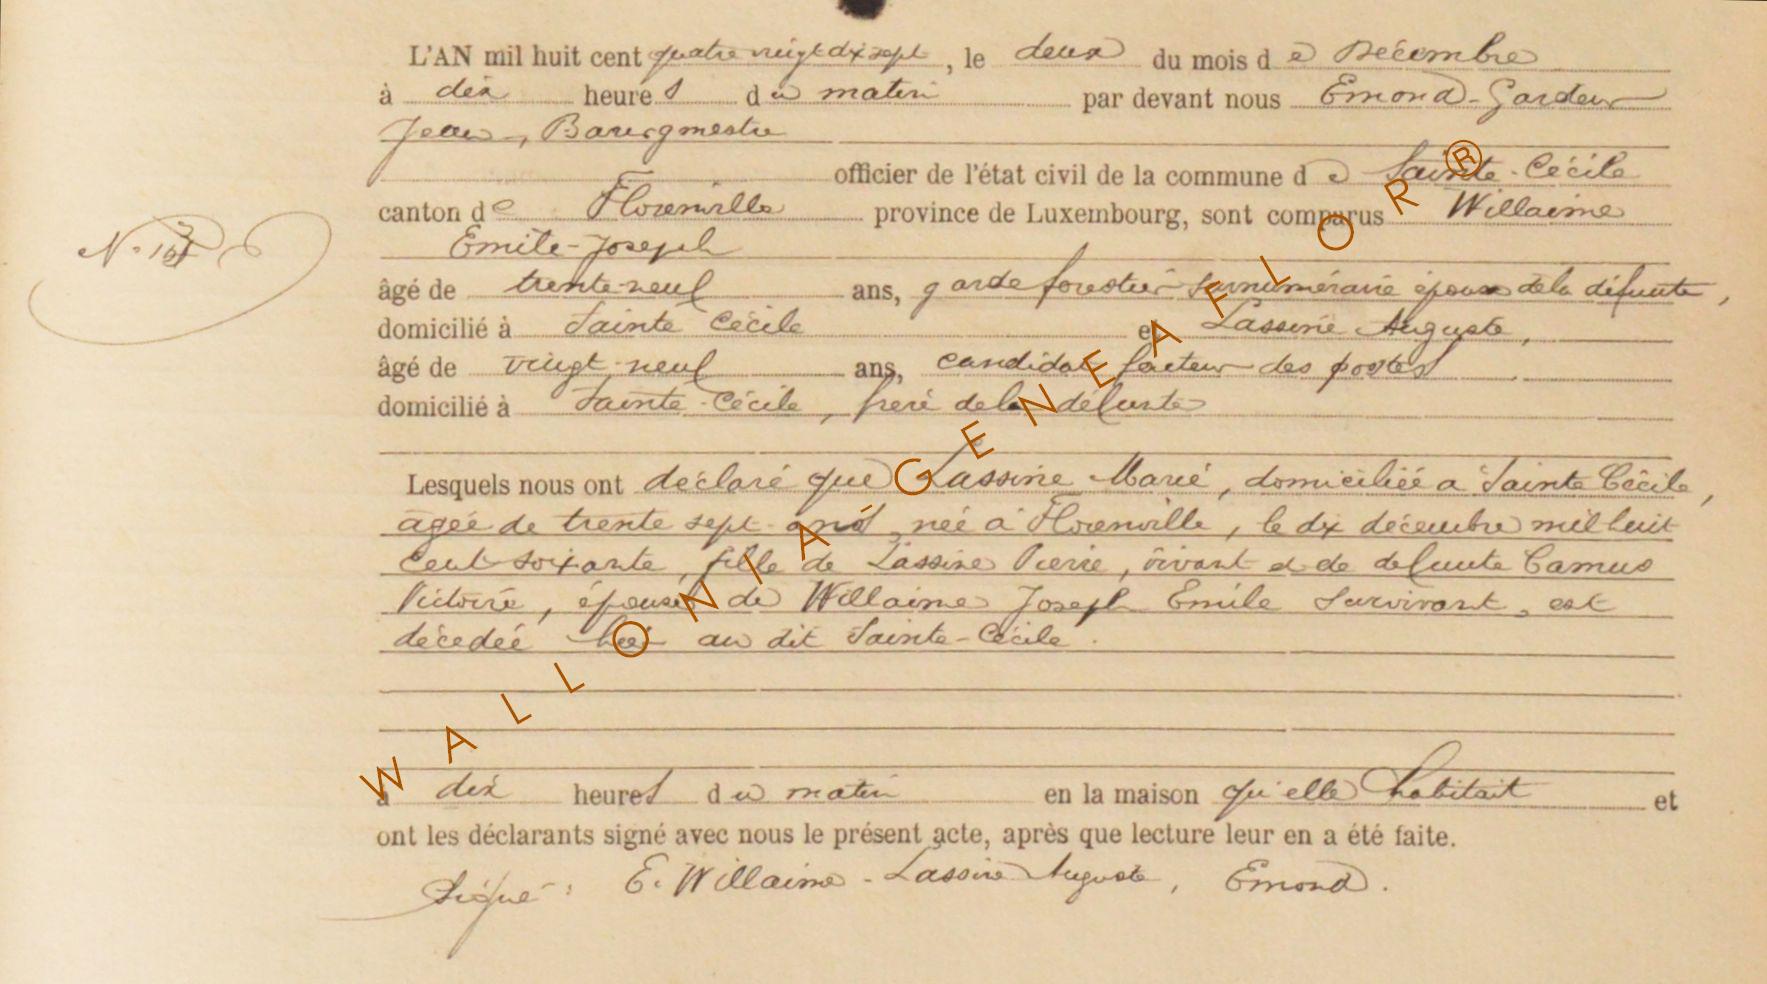 L'AN mil huit cent quatre vingt dix sept, le deux du mois de Décembre
à dix heures du matin par devant nous Emond-Gardeur
Jean, Bourgmestre
officier de l'état civil de la commune de Sainte-Cécile
canton de Florenville province de Luxembourg, sont comparus Willaime
Emile-Joseph
N° 
âgé de trente-neuf ans, garde forestier surnuméraire époux de la défunte,
domicilié à Sainte Cécile et Lassine Auguste,
âgé de vingt-neuf ans, candidat facteur des postes
domicilié à Sainte-Cécile, frère de la défunte
Lesquels nous ont déclaré que Lassine Marie, domiciliée a Sainte Cécile,
agée de trente sept ans, née à Florenville, le dix décembre mil huit
cent soixante, fille de Lassine Pierre, vivant et de defunte Camus
Victoire, épouse de Willaime Joseph Emile survivant, est
décedée hier au dit Sainte-Cécile.
à dix heures du matin en la maison qu'elle habitait et
ont les déclarants signé avec nous le présent acte, après que lecture leur en a été faite.
Signé: E. Willaime - Lassine Auguste, Emond.
WALLONIA GENEAFLOR®